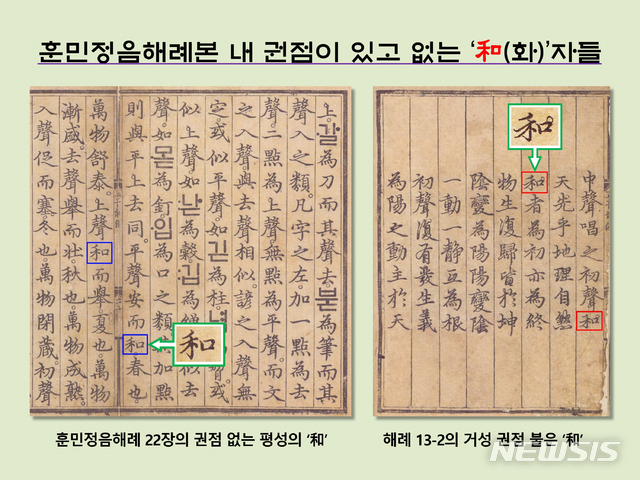 훈민정음해례본 내 권점이 있고 없는 ‘和(화)’자들
上。갈爲刀而其聲去붇爲筆而其
聲入之類。凡字之左。加一點爲去
聲。二點爲上聲。無點爲平聲。而文
之入聲。與去聲相似。諺之入聲無
定。或似平聲。如긷爲柱。或
似上聲。如낟爲穀。깁爲繒。似去
聲。如몯爲釘。입爲口之類。加點
則與平上去同。平聲安而和。春也。
萬物舒泰。上聲和而擧。夏也。萬物
漸盛。去聲擧而壯。秋也。萬物成熟。
入聲促而塞。冬也。萬物閉藏。初聲
和
中聲唱之初聲和
天先乎地理自然
和者爲初亦爲終
物生復歸皆於坤
陰變爲陽陽變陰
一動一靜互爲根
初聲復有發生義
爲陽之動主於天
和
훈민정음해례 22장의 권점 없는 평성의 ‘和’
해례 13-2의 거성 권점 붙은 ‘和’
NEWSIS